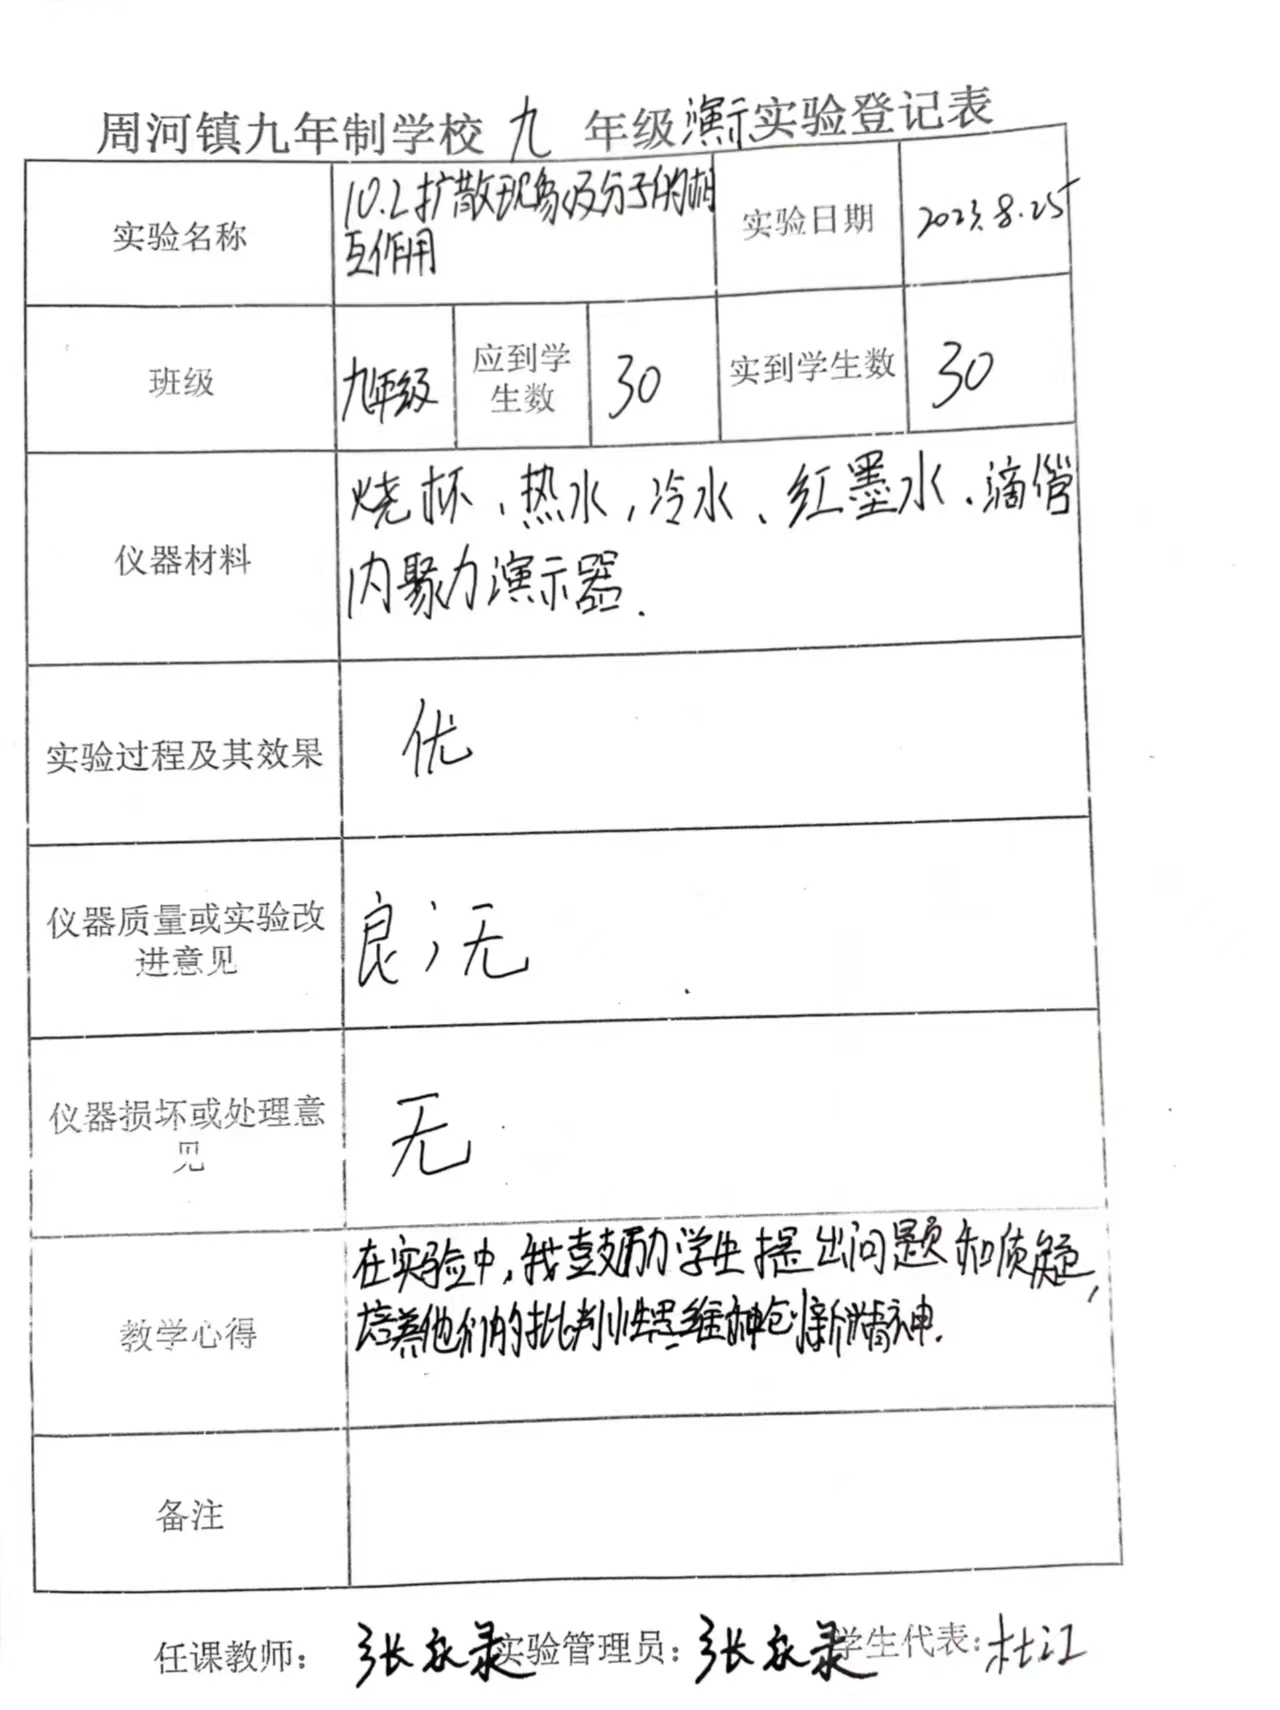 周河镇九年制学校 九 年级演示实验登记表
实验名称
10.2扩散现象及分子的相
互作用
实验日期
2023.8.25
班级
九年级
应到学
生数
30
实到学生数
30
仪器材料
烧杯、热水,冷水、红墨水、滴管
内聚力演示器.
实验过程及其效果
优
仪器质量或实验改
进意见
良;无
仪器损坏或处理意
见
无
教学心得
在实验中,我鼓励学生提出问题和质疑,
培养他们的批判性思维 创新精神.
备注
任课教师: 张 录 实验管理员: 张 录 学生代表: 杜江